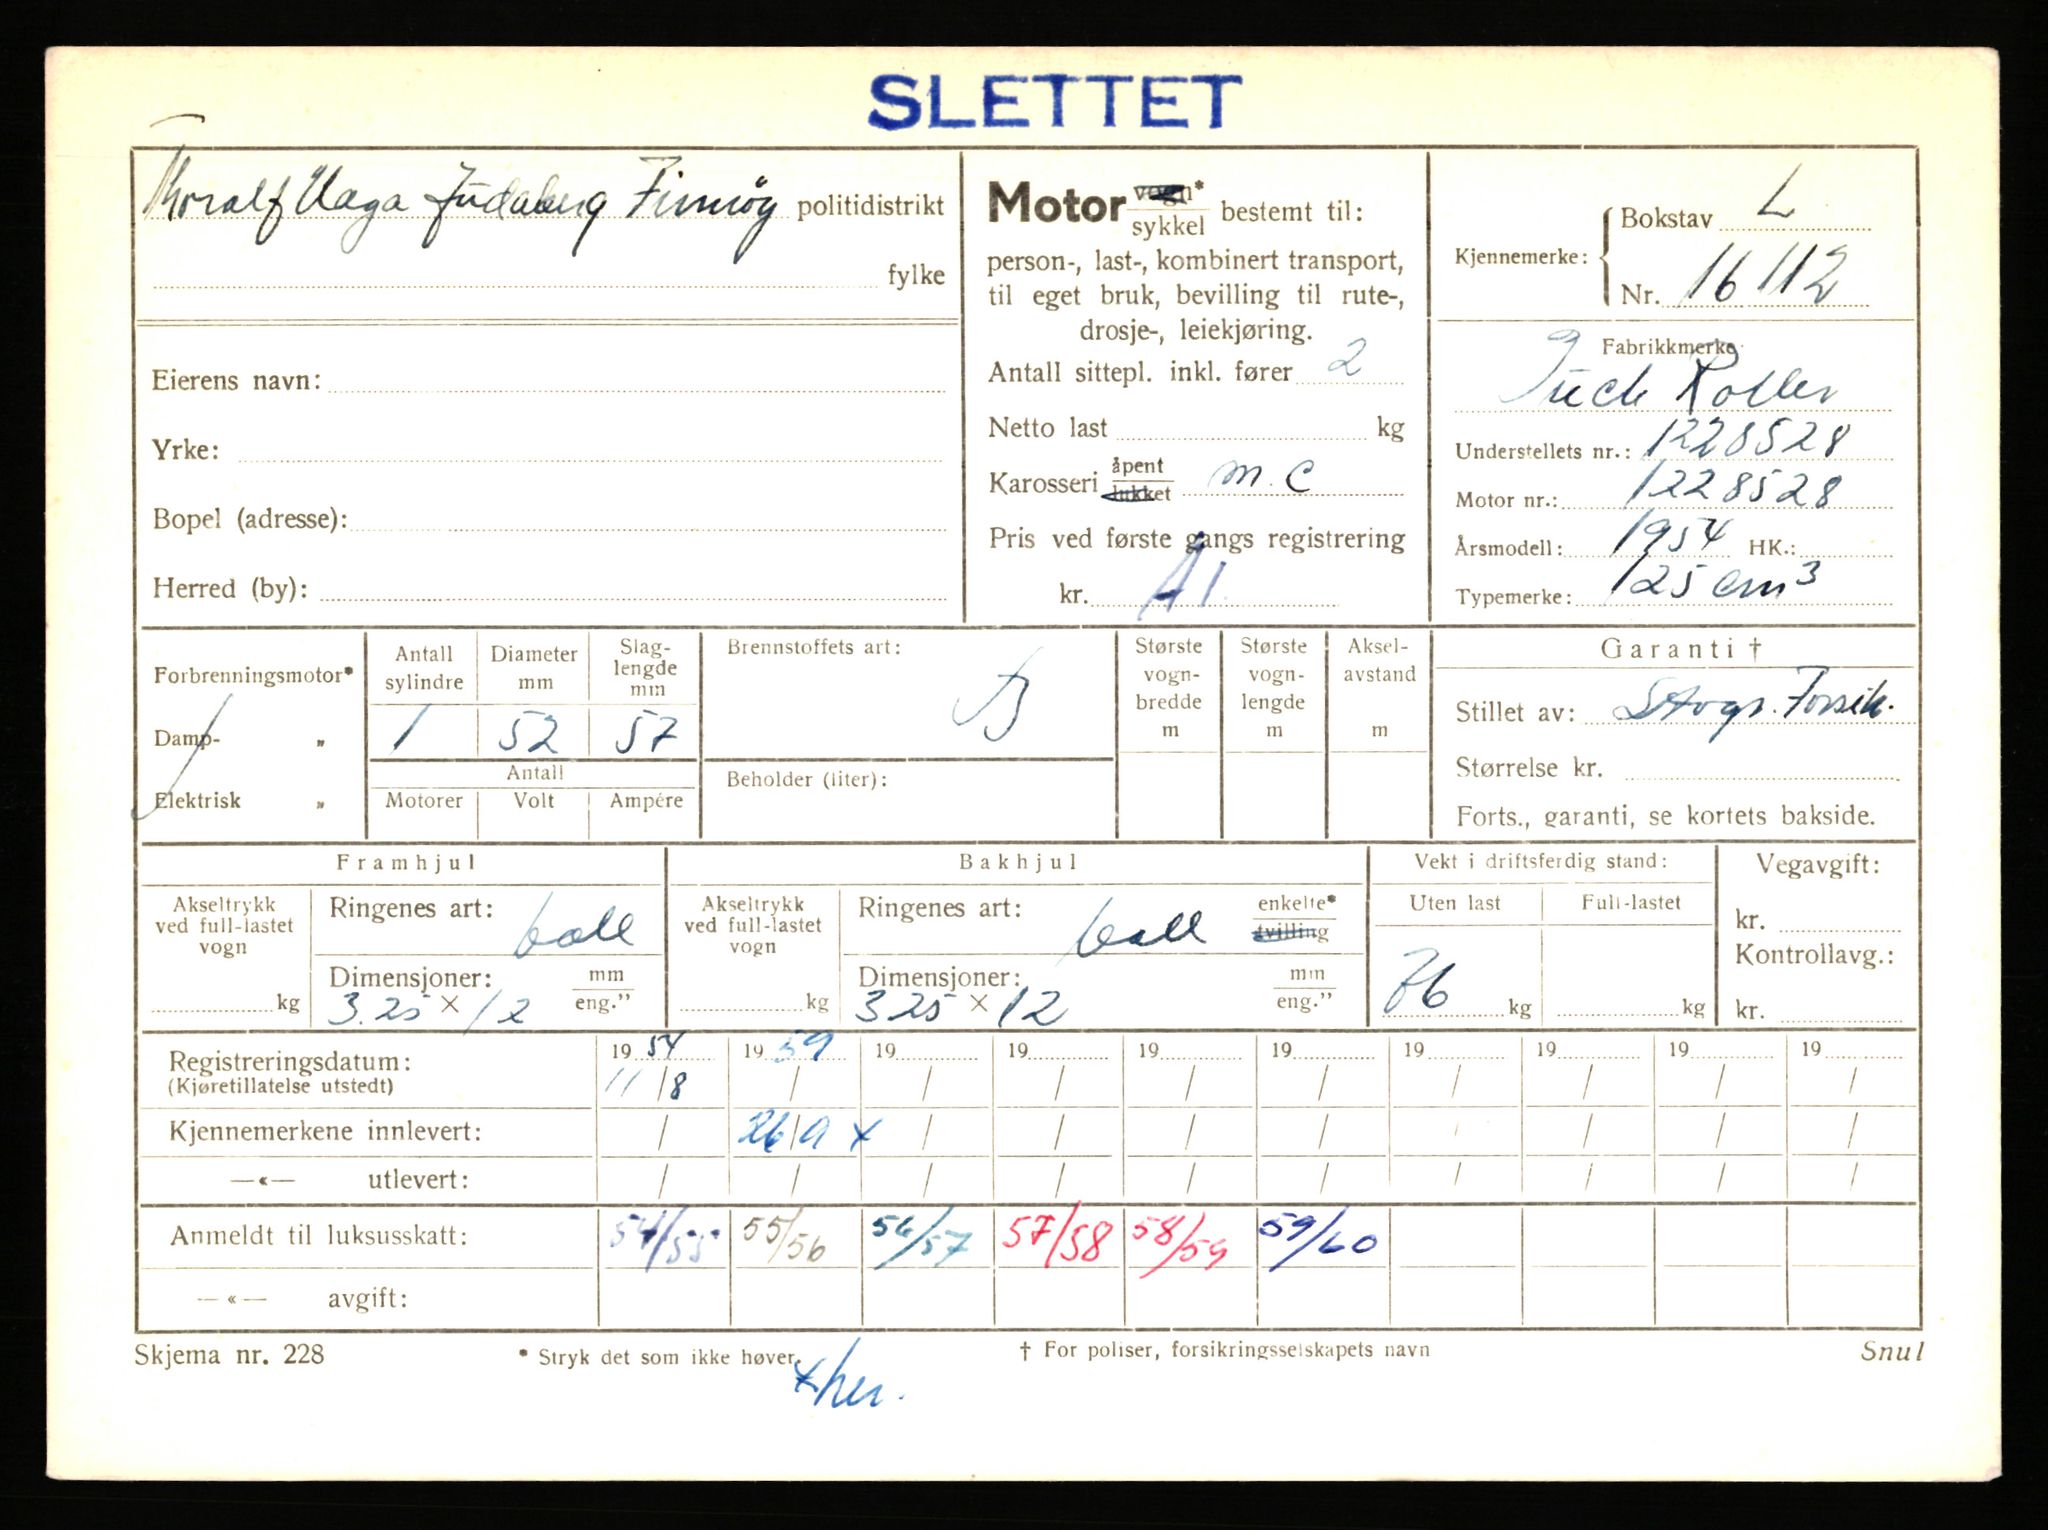 SLETTET
Thoralf Haga Judaberg Finnøy politidistrikt
fylke
Eierens navn:
Yrke:
Bopel (adresse):
Herred (by):
Motor vogn* sykkel bestemt til:
person-, last-, kombinert transport,
til eget bruk, bevilling til rute-,
drosje-, leiekjøring.
Antall sittepl. inkl. fører 2
Netto last kg
Karosseri åpent lukket m.c
Pris ved første gangs registrering
kr. A 1.
Kjennemerke: Bokstav L
Nr. 16112
Fabrikkmerke
Puch Roller
Understellets nr.: 1228528
Motor nr.: 1228528
Årsmodell: 1954 HK.:
Typemerke: 125 cm3
Forbrenningsmotor*
Damp- „
Elektrisk „
Antall sylindre
1
Diameter mm
52
Slaglengde mm
57
Antall
Motorer Volt Ampére
Brennstoffets art:
B
Beholder (liter):
Største vognbredde m
Største vognlengde m
Akselavstand m
Garanti †
Stillet av: Stvgr. Forsik.
Størrelse kr.
Forts., garanti, se kortets bakside.
Framhjul
Akseltrykk ved full-lastet vogn
kg
Ringenes art: ball
Dimensjoner: mm eng."
3.25 × 12
Bakhjul
Akseltrykk ved full-lastet vogn
kg
Ringenes art: ball enkelte* tvilling
Dimensjoner: mm eng."
325 × 12
Vekt i driftsferdig stand:
Uten last Full-lastet
76 kg kg
Vegavgift:
kr.
Kontrollavg.:
kr.
Registreringsdatum: 19 54 19 59 19 19 19 19 19 19 19 19
(Kjøretillatelse utstedt) 11/8 / / / / / / / / /
Kjennemerkene innlevert: / 26/9 x / / / / / / / /
—«— utlevert: / / / / / / / / / /
Anmeldt til luksusskatt: 54/55 55/56 56/57 57/58 58/59 59/60
—«— avgift:
Skjema nr. 228 * Stryk det som ikke høver. † For poliser, forsikringsselskapets navn Snul
x her.